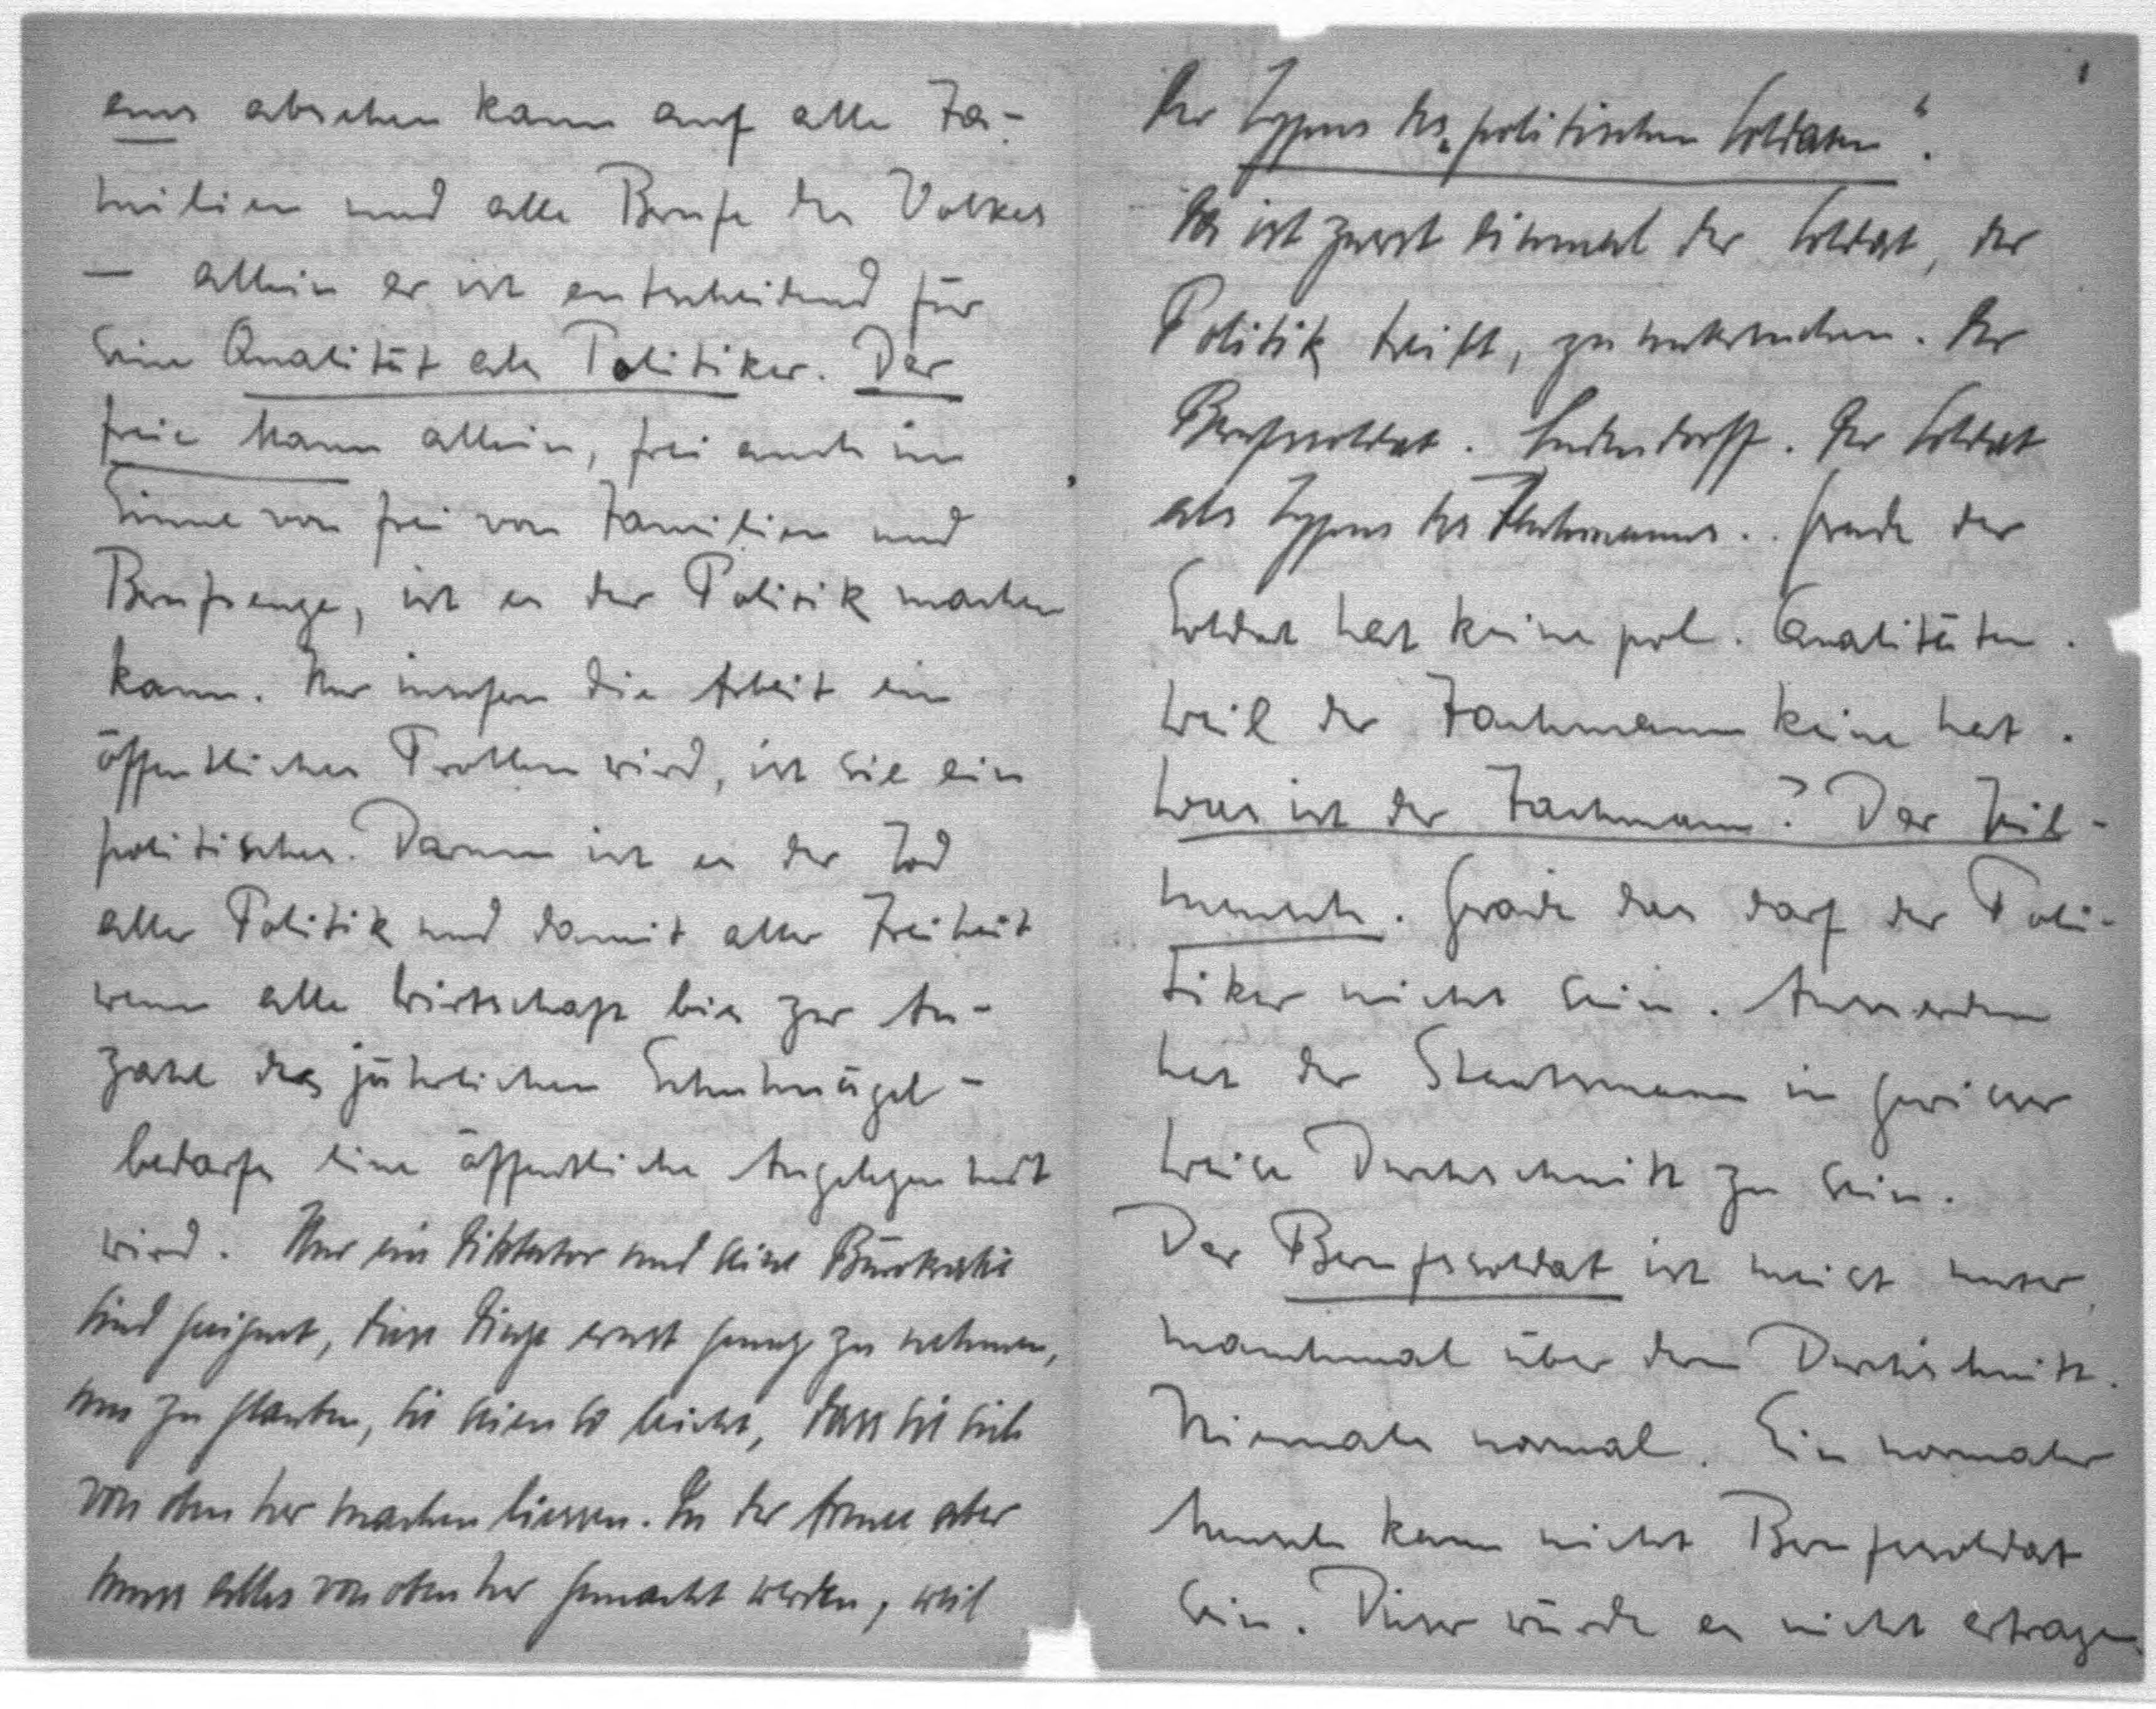 eins absehen kann auf alle Fa-
milien und alle Berufe des Volkes
— allein er ist entscheidend für
seine Qualität als Politiker. Der
freie Mann allein, frei auch im
Sinne von frei von Familien und
Berufsenge, ist es der Politik machen
kann. Nur insofern die Arbeit ein
öffentliches Problem wird, ist sie ein
politisches. Darum ist es der Tod
aller Politik und damit aller Freiheit
wenn alle Wirtschaft bis zur An-
zahl des jährlichen Schuhnägel-
bedarfs eine öffentliche Angelegenheit
wird. Nur ein Diktator und seine Bürokratie
sind geeignet, diese Dinge ernst genug zu nehmen,
um zu glauben, sie seien so leicht, dass sie sich
von oben her machen liessen. In der Armee aber
muss alles von oben her gemacht werden, weil
Der Typus des „politischen Soldaten“.
Da ist zuerst einmal der Soldat, der
Politik treibt, zu untersuchen. Der
Berufssoldat. Ludendorff. Der Soldat
als Typus des Fachmanns. Grade der
Soldat hat keine pol. Qualitäten.
Weil der Fachmann keine hat.
Was ist der Fachmann? Der Teil-
mensch. Gerade das darf der Poli-
tiker nicht sein. Ausserdem
hat der Staatsmann in gewisser
Weise Durchschnitt zu sein.
Der Berufssoldat ist meist unter,
manchmal über dem Durchschnitt.
Niemals normal. Ein normaler
Mensch kann nicht Berufssoldat
sein. Dieser würde es nicht ertragen